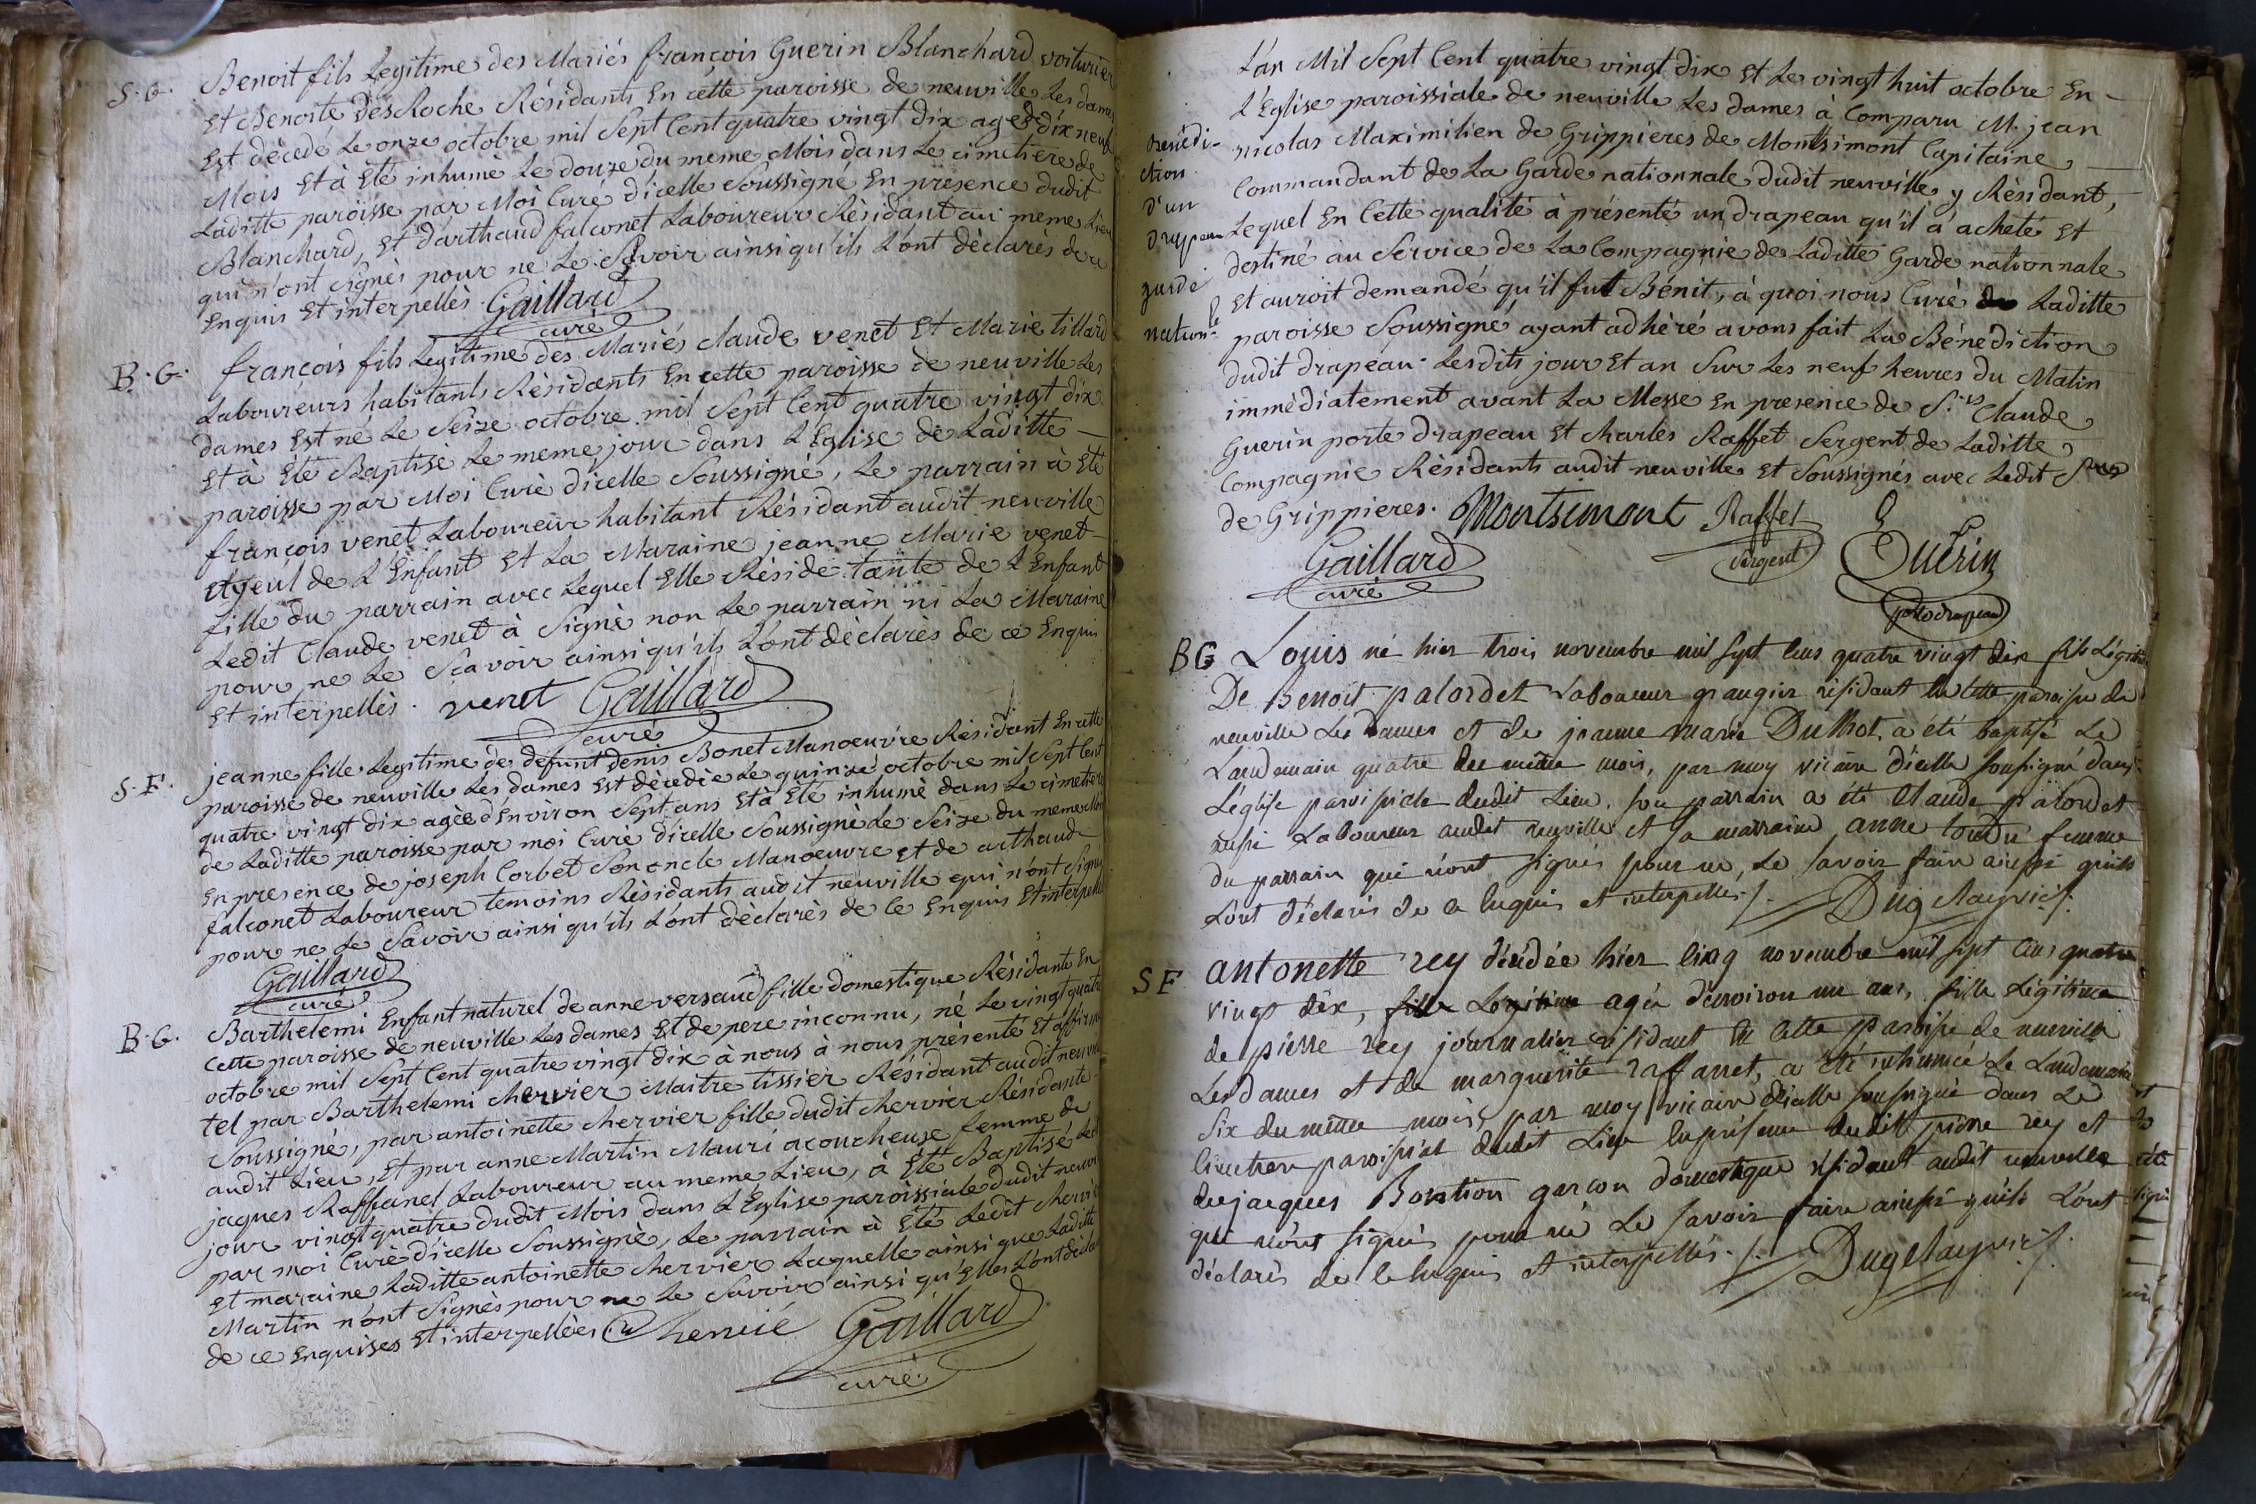 S. G. Benoit fils Legitime des Mariés françois Guerin Blanchard voiturier
Et Benoite desRoche Résidants En cette paroisse de neuville Les dames
Est décedé Le onze octobre mil Sept Cent quatre vingt dix agé d dix neuf
Mois Et à Eté inhumé Le douze du meme Mois dans Le cimetiere de
Laditte paroisse par Moi Curé d'icelle Soussigné En présence dudit
Blanchard, Et d'arthaud falconet Laboureur Résidant au meme Lieu
qui n'ont signés pour ne Le Sçavoir ainsi qu'ils L'ont déclarés de ce
Enquis Et interpellés. Gaillard
curé
B. G. françois fils Legitime des Mariés claude venet Et Marie tillard
Laboureurs habitants Résidants En cette paroisse de neuville Les
dames Est né Le Seize octobre mil Sept Cent quatre vingt dix
Et à Eté Baptisé Le meme jour dans L'Eglise de Laditte
paroisse par Moi Curé d'icelle Soussigné, Le parrain à Eté
françois venet Laboureur habitant Résidant audit neuville
ayeul de L'Enfant Et La Maraine jeanne Marie venet
fille du parrain avec Lequel Elle Réside tante de L'Enfant
Ledit Claude venet à Signé non Le parrain ni La Maraine
pour ne Le Sçavoir ainsi qu'ils L'ont déclarés de ce Enquis
Et interpellés. venet Gaillard
curé
S. F. jeanne fille Legitime de défunt denis Bonet Manoeuvre Résidant En cette
paroisse de neuville Les dames Est décedée Le quinze octobre mil Sept Cent
quatre vingt dix agée d'Environ Sept ans Et à Eté inhumé dans Le cimetiere
de Laditte paroisse par moi Curé d'icelle Soussigné Le Seize du meme Mois
En presence de joseph Corbet Son oncle Manoeuvre Et de arthaud
falconet Laboureur temoins Résidants audit neuville qui n'ont Signés
pour ne Le Savoir ainsi qu'ils L'ont déclarés de Ce Enquis Et interpellés
Gaillard
curé
B. G. Barthelemi Enfant naturel de anne versaud fille domestique Résidante En
Cette paroisse de neuville Les dames Et de pere inconnu, né Le vingt quatre
octobre mil Sept Cent quatre vingt dix à nous à nous présenté Et affirmé
tel par Barthelemi chervier Maitre tissier Résidant audit neuville
Soussigné, par antoinette chervier fille dudit chervier Résidante
audit Lieu, Et par anne Martin Mauri acoucheuse femme de
jaques Raffanel Laboureur au meme Lieu, à Eté Baptisé Ledit
jour vingt quatre dudit Mois dans L'Eglise paroissiale dudit neuville
par moi Curé d'icelle Soussigné, Le parrain à Eté Ledit chervier
Et maraine Laditte antoinette chervier Laquelle ainsi que Laditte
Martin n'ont Signés pour ne Le Savoir ainsi qu'Elles L'ont déclaré
de ce Enquises Et interpellées Gaillard
curé
L'an Mil Sept Cent quatre vingt dix Et Le vingt huit octobre En
L'Eglise paroissiale de neuville Les dames à Comparu M. jean
nicolas Maximilien de Grippieres de Montsimont Capitaine
Commandant de La Garde nationnale dudit neuville y Résidant,
Lequel En Cette qualité à présenté un drapeau qu'il à acheté Et
destiné au Service de La Compagnie de Laditte Garde nationnale
Et auroit demandé qu'il fut Bénit, à quoi nous Curé de Laditte
paroisse Soussigné ayant adhéré avons fait La Bénédiction
dudit drapeau Lesdits jour Et an Sur Les neuf heures du Matin
immédiatement avant La Messe En presence de S.rs Claude
Guerin porte drapeau Et charles Raffet Sergent de Laditte
Compagnie Résidants audit neuville Et Soussignés avec Ledit S.
de Grippieres. Montsimont Raffet
sergent
Gaillard
curé
Guérin
portedrapeau
Bénédi-
ction
d'un
Drapeau
garde
nation.le
BG Louis né hier trois novembre mil sept cens quatre vingt dix fils Légitime
De Benoit palordet Laboureur grangier résidant en cette paroisse de
neuville Les Dames et de jeanne marie Du a été baptisé Le
Landemain quatre du même mois, par moy vicaire d'icelle soussigné dans
L'église paroissiale dudit Lieu. son parrain a été Claude palordet
aussi Laboureur audit neuville et sa marraine anne femme
Du parrain qui n'ont signés pour ne Le savoir faire ainssi quils
L'ont déclarés de ce Enquis et interpellés.
SF antonette rey décédée hier cinq novembre mil sept cens quatre
vingt dix, fille Légitime agée denviron un ans, fille Légitime
de pierre rey journalier résidant en cette paroisse de neuville
Les dames et de marguerite raffanet, a été inhumée Le Landemain
six du même mois par moy vicaire d'icelle soussigné dans Le
Cimetiere paroissial dudit Lieu en présence dudit pierre rey et
de jacques garcon domestique résidant audit neuville
qui n'ont signés pour ne Le savoir faire ainssi quils L'ont
déclarés de Ce Enquis et interpellés.